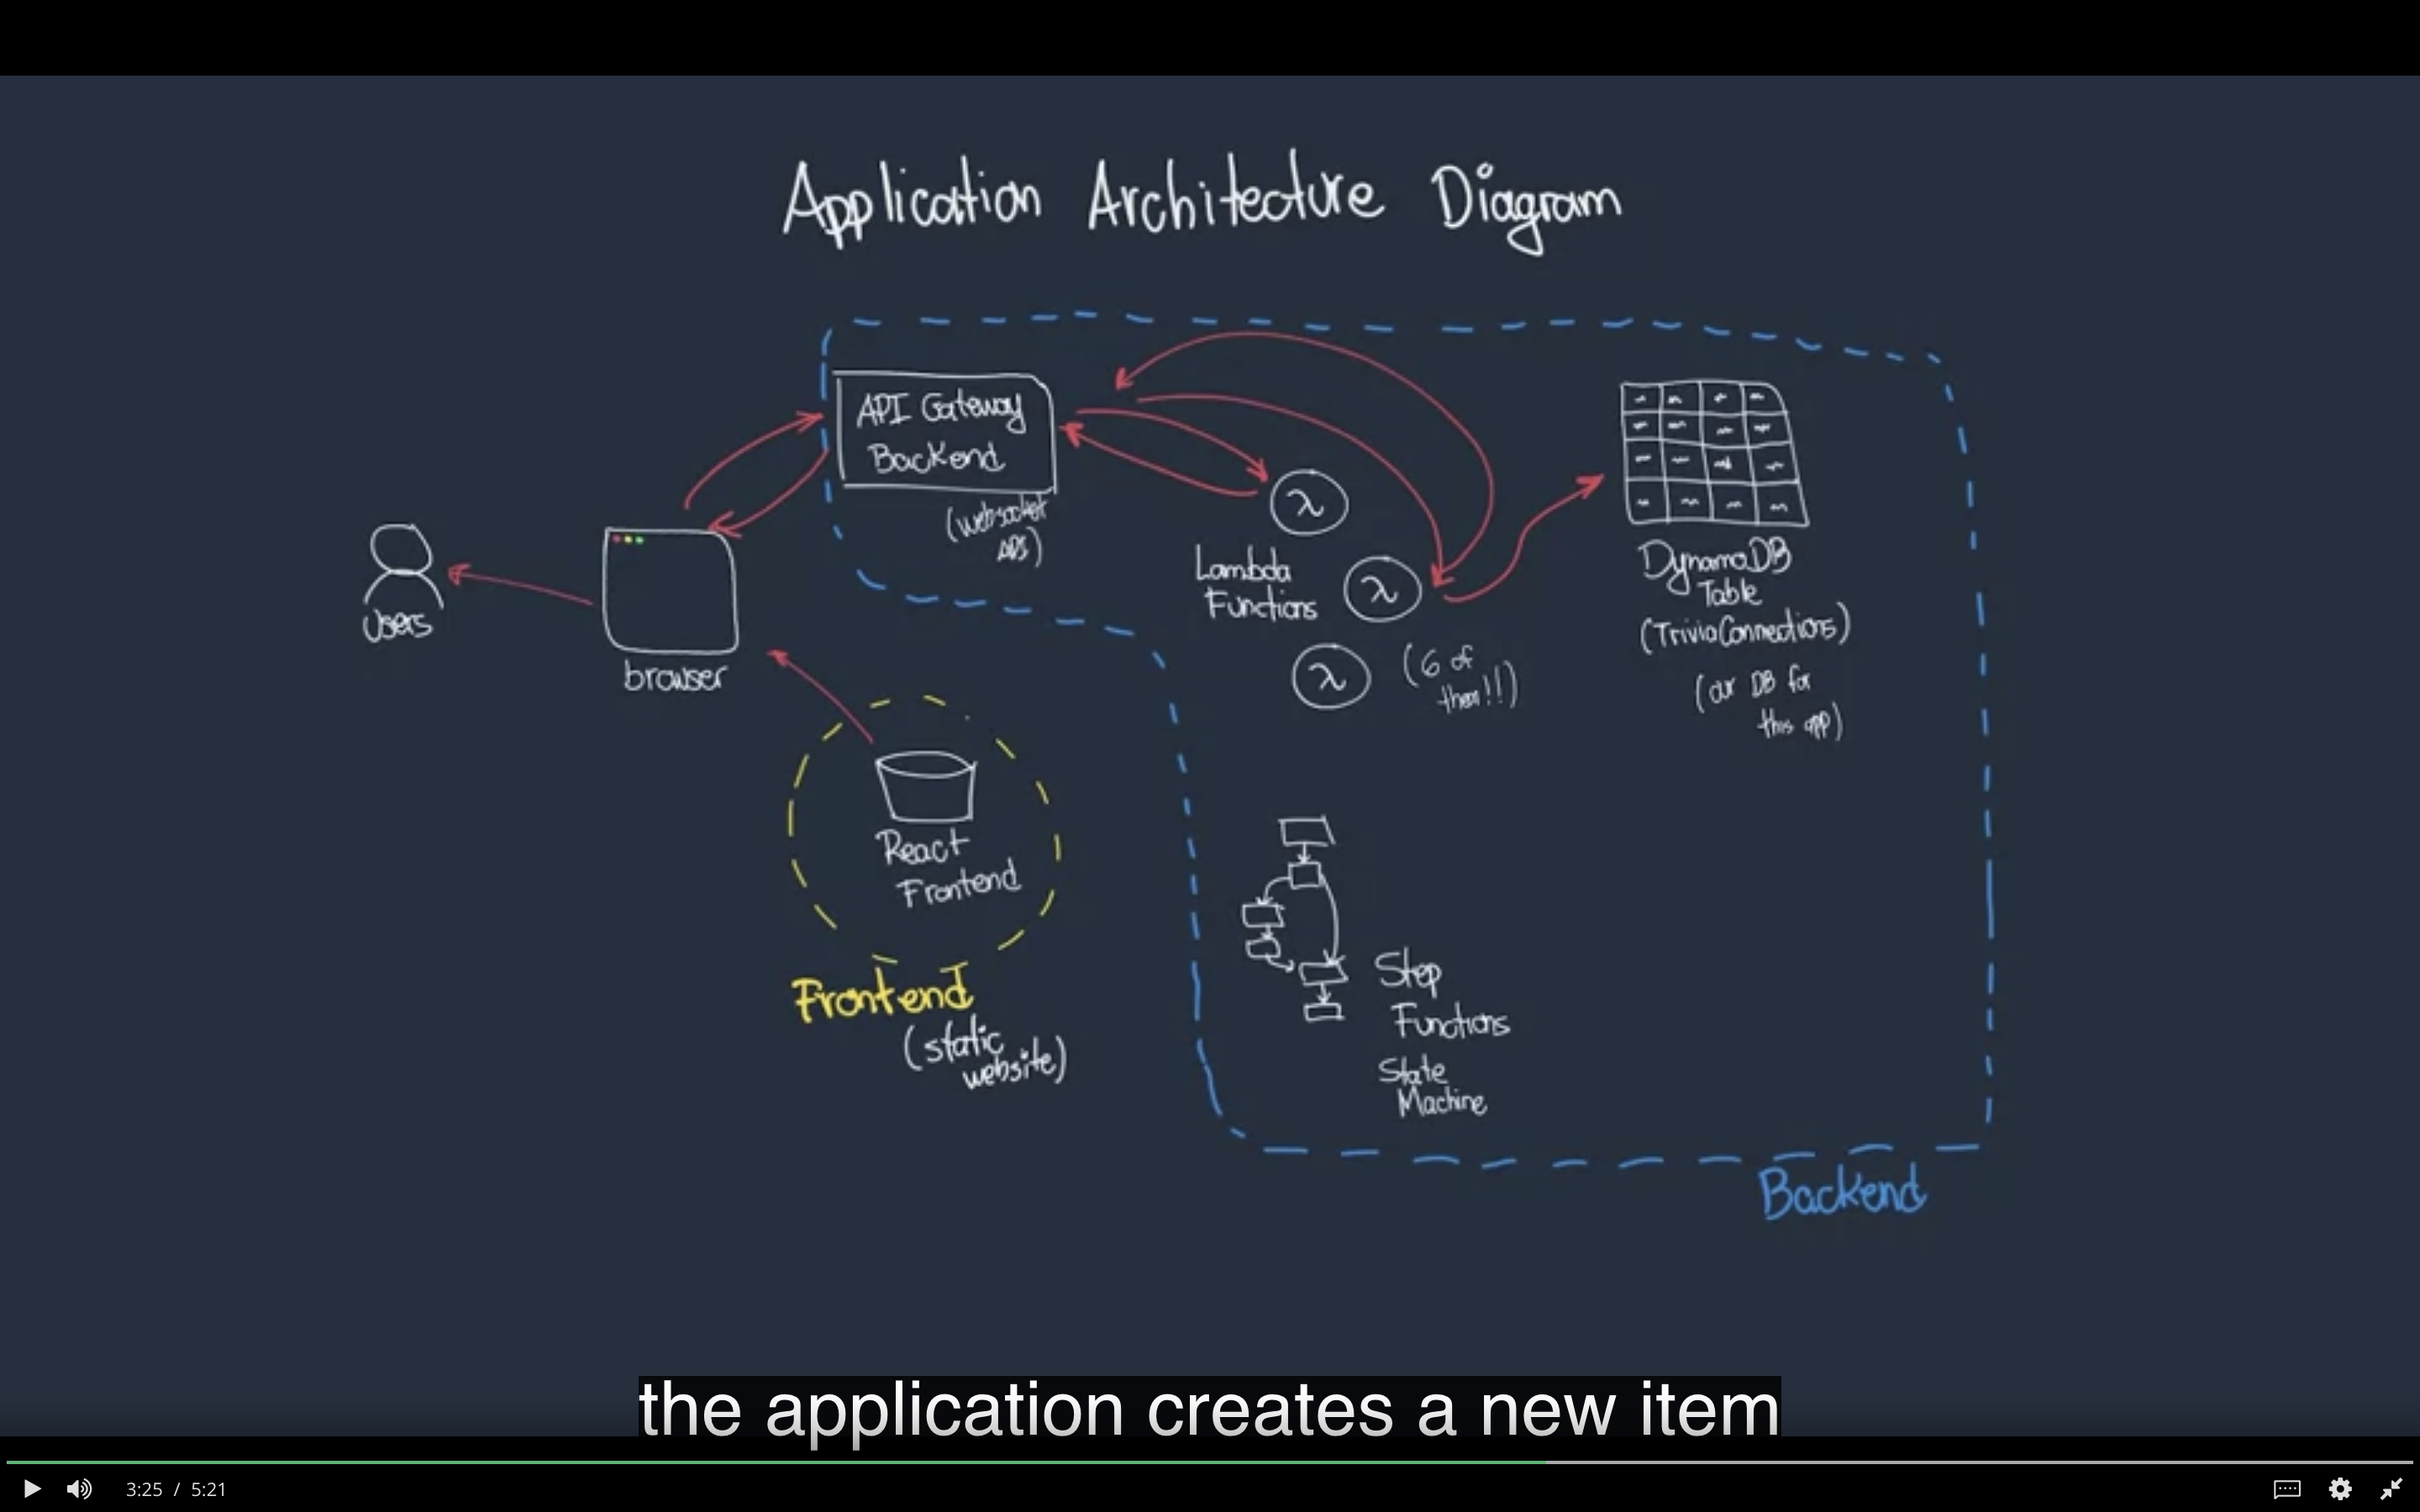 Application Architecture Diagram
API Gateway
Backend
(websocket
API)
Users
browser
λ
Lambda
Functions
λ
λ
(6 of
them!!)
DynamoDB
Table
(TriviaConnections)
(our DB for
this app)
React
Frontend
Frontend
(static
website)
Step
Functions
State
Machine
Backend
the application creates a new item
3:25 / 5:21